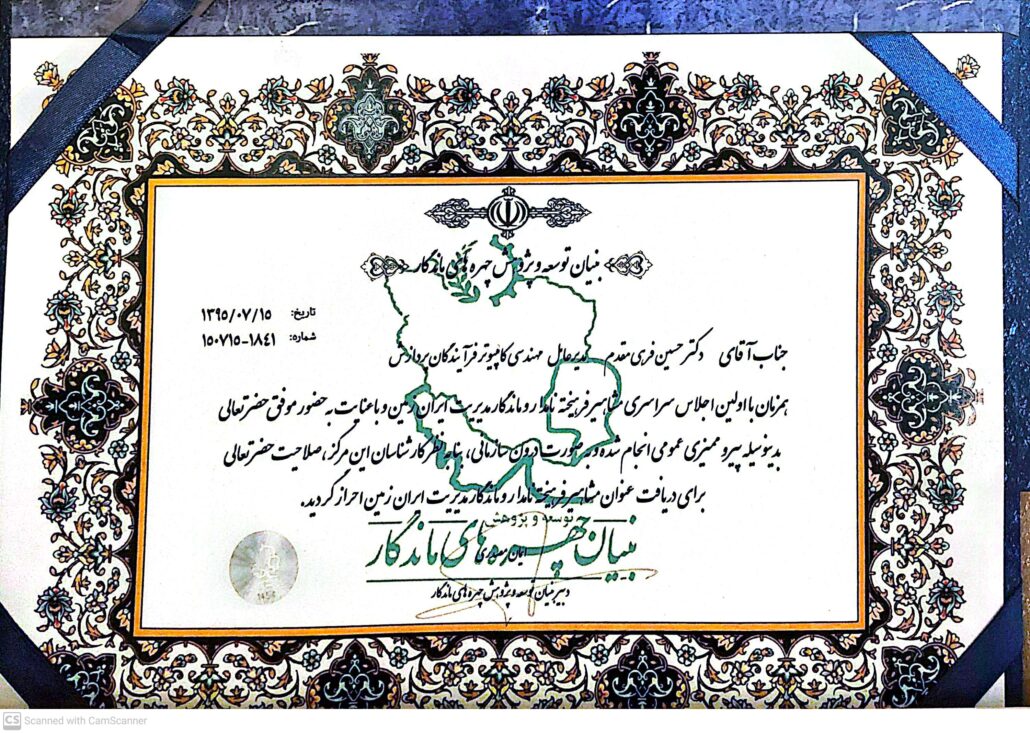 بنیان توسعه و پژوهش چهره های ماندگار
تاریخ: ۱۳۹۵/۰۷/۱۵
شماره: ۱۵۰۷۱۵-۱۸٤۱
جناب آقای دکتر حسین فرهی مقدم مدیرعامل مهندسی کامپیوتر فرآیندگان پردازش
همزمان با اولین اجلاس سراسری مشاهیر فرهیخته نامدار و ماندگار مدیریت ایران زمین و با عنایت به حضور موفق حضرتعالی
بدینوسیله پیرو ممیزی عمومی انجام شده و به صورت درون سازمانی، بنا به نظر کارشناسان این مرکز، صلاحیت حضرتعالی
برای دریافت عنوان مشاهیر فرهیخته نامدار و ماندگار مدیریت ایران زمین احراز گردید.
توسعه و پژوهش
بنیان چهره های ماندگار
دبیر بنیان توسعه و پژوهش چهره های ماندگار
CS Scanned with CamScanner